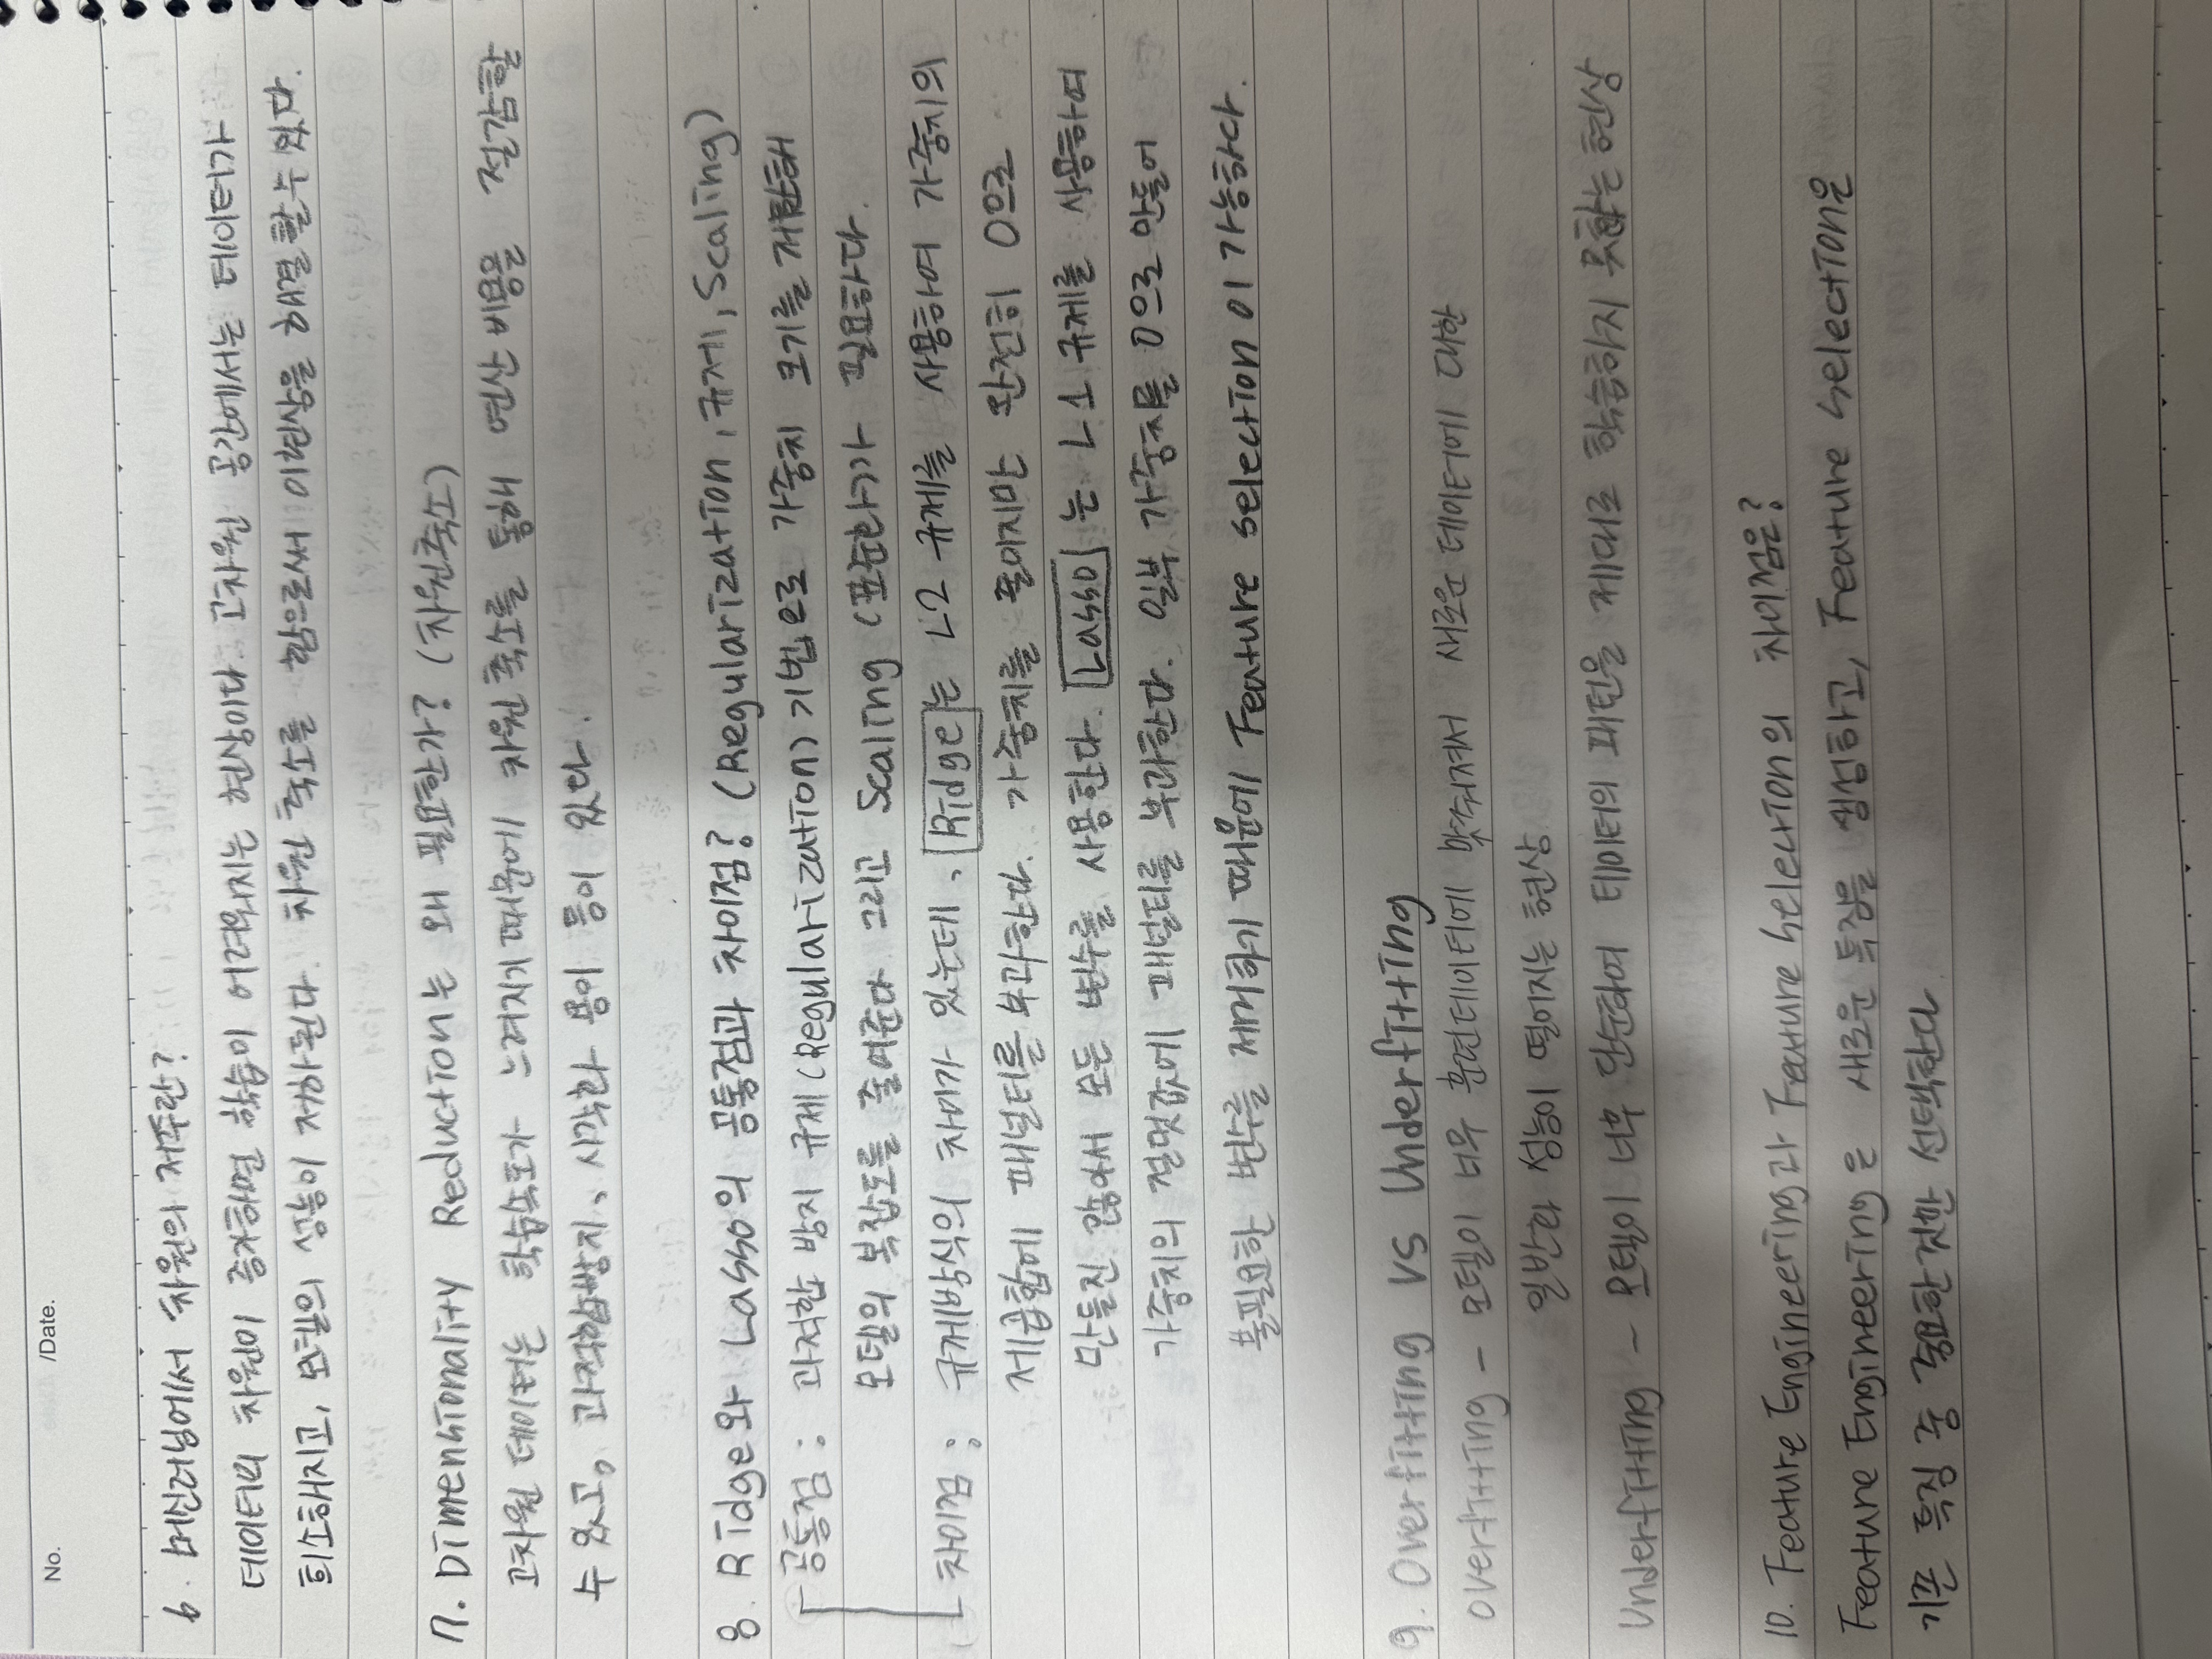 No. /Date.
6. 머신러닝에서 차원의 저주란?
데이터의 차원이 증가하면 학습이 어려워지는 현상이다. 고차원 공간에서는 데이터가
희소해지고, 모델의 성능이 저하된다. 차원 축소를 함으로써 이현상을 해결 할 수 있다.
7. Dimensionality Reduction는 왜 필요한가? (차원축소)
고차원 데이터는 학습속도가 느려지기 때문에 차원 축소를 통해 연산 비용을 절감할
수 있고, 과적합방지, 시각화 용이 등이 있다.
8. Ridge와 Lasso의 공통점과 차이점? (Regularization, 규제, Scaling)
공통점 : 과적합 방지 규제(Regularization) 기법으로 가중치 크기를 제한해
모델의 복잡도를 줄여준다 그리고 Scaling (표준화)가 필요하다.
차이점 : 규제방식의 차이가 있는데, Ridge는 L2 규제를 사용하여 가중치의
제곱합에 패널티를 부과한다. 가중치를 줄이지만 완전히 0으로
만들진 않아서 모든 변수를 사용한다. Lasso는 L1 규제를 사용하여
가중치의 절댓값에 패널티를 부과한다. 일부 가중치를 0으로 만들어
불필요한 변수를 제거하기 때문에 Feature selection이 가능하다.
9. Overfitting vs Underfitting
Overfitting - 모델이 너무 훈련데이터에 맞춰져서 새로운 데이터에 대한
일반화 성능이 떨어지는 현상
Underfitting - 모델이 너무 단순하여 데이터의 패턴을 제대로 학습하지 못하는 현상
10. Feature Engineering과 Feature Selection의 차이점은?
Feature Engineering은 새로운 특징을 생성하고, Feature Selection은
기존 특징 중 중요한것만 선택한다